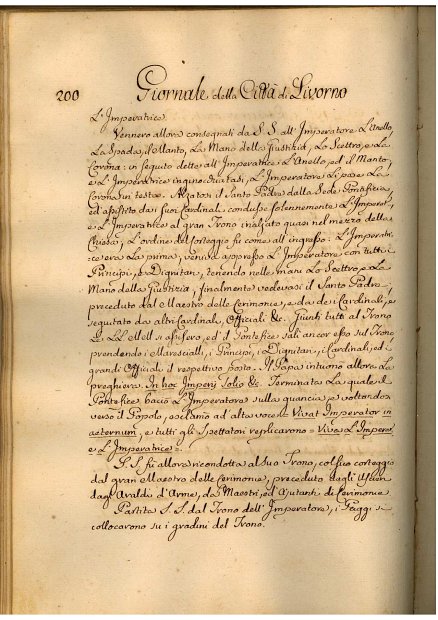 200 Giornale della Città di Livorno
L'Imperatrice.
Vennero allora consegnati da S. S. all'Imperatore L'Anello,
La Spada, il Manto, La Mano della Giustizia, Lo Scettro, e La
Corona: in seguito dette all'Imperatrice L'Anello, ed il Manto,
e L'Imperatrice inginocchiatasi, L'Imperatore Li pose La
Corona in testa. Alzatosi il Santo Padre dalla Sede Pontificia,
ed assistito dai suoi Cardinali condusse solennemente L'Imperat.,
e L'Imperatrice al gran Trono inalzato quasi nel mezzo della
Chiesa. L'ordine del Corteggio fù come all'ingresso: L'Imperatri-
ce era La prima, veniva appresso L'Imperatore con tutti i
Principi, e Dignitarj, tenendo nelle mani Lo Scettro, e La
Mano della Giustizia, finalmente vedevasi il Santo Padre
preceduto dal Maestro delle Cerimonie, e da dei Cardinali, e
seguitato da altri Cardinali, Officiali &c. Giunti tutti al Trono
e LL. MM. si assisero, ed il Pontefice salì ancor esso sul Trono
prendendo i Marescialli, i Principi, i Dignitarj, i Cardinali, ed i
grandi Officiali il respettivo posto. Il Papa intuonò allora La
preghiera. In hoc Imperij Solio &c. Terminata La quale il
Pontefice baciò L'Imperatore sulla guancia, e voltandosi
verso il Popolo, esclamò ad alta voce = Vivat Imperator in
aeternum, e tutti gli Spettatori replicarono = Viva L'Imper.e
e L'Imperatrice =.
S. S. fù allora ricondotta al suo Trono, col suo corteggio
dal gran Maestro delle Cerimonie, preceduto dagli Uscieri
dagl'Araldi d'Arme, da Maestri, ed Ajutanti di Cerimonie
Partita S. S. dal Trono dell'Imperatore, i Paggi si
collocarono su i gradini del Trono.